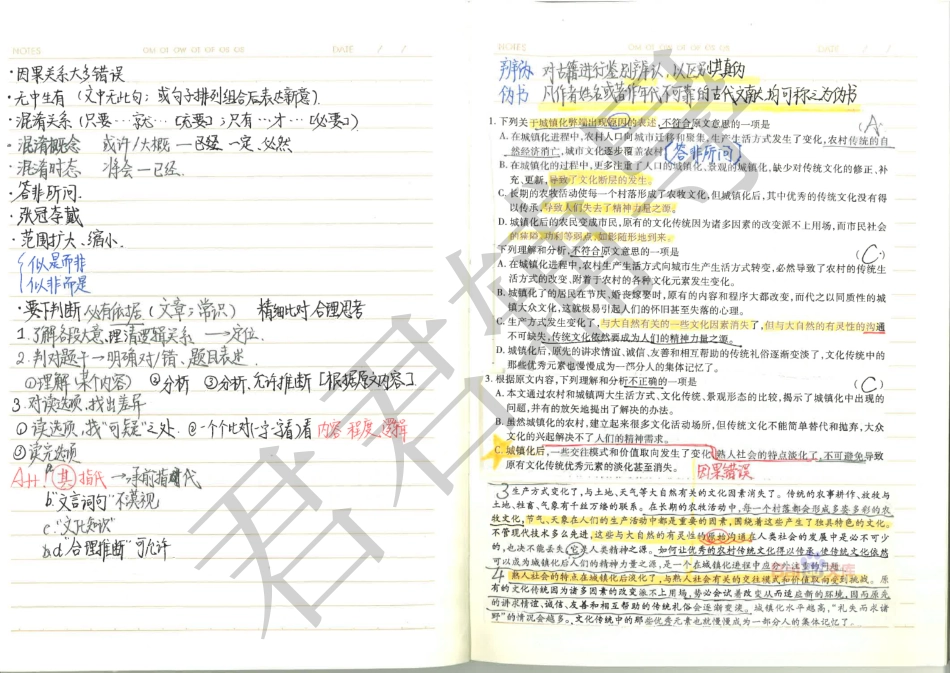 NOTES
DATE / /
·因果关系大多错误
·无中生有(文中无此句;或句子排列组合后表达新意).
·混淆关系(只要…就…[充要];只有…才…[必要])
·混淆概念 或许/大概—已经 一定、必然
·混淆时态 将会—已经.
·答非所问.
·张冠李戴
·范围扩大、缩小.
似是而非
似非而是
·要下判断 必有依据.(文章;常识) 精细比对 合理思考
1.了解各段大意,理清逻辑关系 → 定位.
2.判对题干→明确对/错、题目表述.
①理解(某个内容) ②分析 ③分析,允许推断[根据原文内容].
3.对读选项,找出差异
①读选项,找"可疑"之处. ②一个个比对(一字一字看)看 内容 程度 逻辑
③读完选项
A++! a.其 指代→承前指代
b."文言词句"不莫视
c."文化知识"
d."合理推断"可允许.
NOTES
DATE / /
辩伪 对古籍进行鉴别辨认,以区别其真伪
伪书 凡作者姓名或著作年代不可靠的古代文献大均可称之为伪书
1. 下列关于城镇化弊端出现原因的表述,不符合原文意思的一项是 (A.
A. 在城镇化进程中,农村人口向城市迁移和聚集,生产生活方式发生了变化,农村传统的自
然经济消亡,城市文化逐步覆盖农村。[答非所问]
B. 在城镇化的过程中,更多注重了人口的城镇化、景观的城镇化,缺少对传统文化的修正、补
充、更新,导致了文化断层的发生。
C. 长期的农牧活动使每一个村落形成了农牧文化,但城镇化后,其中优秀的传统文化没有得
以传承,导致人们失去了精神力量之源。
D. 城镇化后的农民变成市民,原有的文化传统因为诸多因素的改变派不上用场,而市民社会
的麻烦、功利等弱点,如影随形地到来。
下列理解和分析,不符合原文意思的一项是 (C.)
A. 在城镇化进程中,农村生产生活方式向城市生产生活方式转变,必然导致了农村的传统生
活方式的改变、附着于农村的各种文化元素发生变化。
B. 城镇化了的居民在节庆、婚丧嫁娶时,原有的内容和程序大都改变,而代之以同质性的城
镇大众文化,这就极易引起人们的怀旧甚至失落的心理。
C. 生产方式发生变化了,与大自然有关的一些文化因素消失了,但与大自然的有灵性的沟通
不可缺失,传统文化依然要成为人们的精神力量之源。
D. 城镇化后,原先的讲求情谊、诚信、友善和相互帮助的传统礼俗逐渐变淡了,文化传统中的
那些优秀元素也慢慢成为一部分人的集体记忆了。
3. 根据原文内容,下列理解和分析不正确的一项是 (C)
A. 本文通过农村和城镇两大生活方式、文化传统、景观形态的比较,揭示了城镇化中出现的
问题,并有的放矢地提出了解决的办法。
B. 虽然城镇化的农村,建立起来很多文化活动场所,但传统文化不能简单替代和抛弃,大众
文化的兴起解决不了人们的精神需求。
C. 城镇化后,一些交往模式和价值取向发生了变化,熟人社会的特点淡化了,不可避免导致
原有文化传统优秀元素的淡化甚至消失。 因果错误
3 生产方式变化了,与土地、天气等大自然有关的文化因素消失了。传统的农事耕作、放牧与
土地、牲畜、气象有千丝万缕的联系。在长期的农牧活动中,每一个村落都会形成多姿多彩的农
牧文化,节气、天象在人们的生产活动中都是重要的因素,围绕着这些产生了独具特色的文化。
不管现代技术多么先进,这些与大自然的有灵性的原始沟通在人类社会的发展中是必不可少
的,也决不能丢失它是人类精神之源。如何让优秀的农村传统文化得以传承,使传统文化依然
可以成为城镇化后人们的精神力量之源,是一个在城镇化进程中应意外注意的问题。
4 熟人社会的特点在城镇化后淡化了,与熟人社会有关的交往模式和价值取向受到挑战。原
有的文化传统因为诸多因素的改变派不上用场,势必会试着改变从而适应新的环境,因而原先
的讲求情谊、诚信、友善和相互帮助的传统礼俗会逐渐变淡。城镇化水平越高,"礼失而求诸
野"的情况会越多。文化传统中的那些优秀元素也就慢慢成为一部分人的集体记忆了。